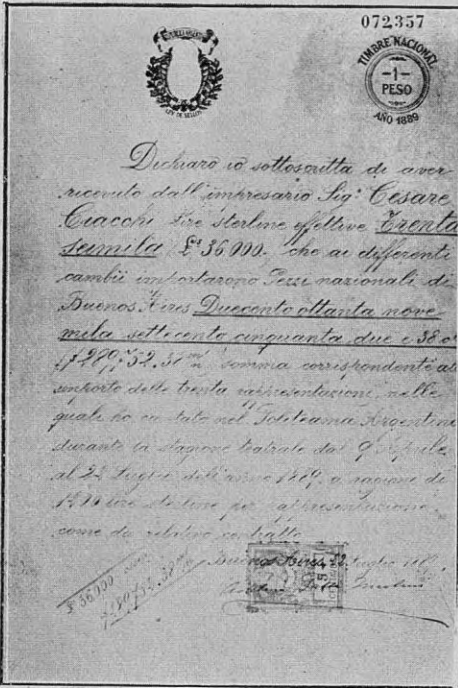 072357
TIMBRE NACIONAL
-1-
PESO
AÑO 1889
LEY DE SELLOS
Dichiaro io sottoscritta di aver
ricevuto dall'impresario Sigr Cesare
Ciacchi lire sterline effettive Trenta
seimila £ 36000. che ai differenti
cambii importarono Pezzi nazionali di
Buenos Aires Duecento ottanta nove
mila settecento cinquanta due e 38 c
289.752.38 somma corrispondente all
importo delle trenta rappresentazioni nelle
quali ho cantato nel Politeama Argentino
durante la stagione teatrale dal 9 Aprile
al 22 Luglio dell'anno 1889. a ragione di
lire sterline per rappresentazione
come da relativo contratto
Buenos Aires, 22 Luglio
£ 36000
289752.38